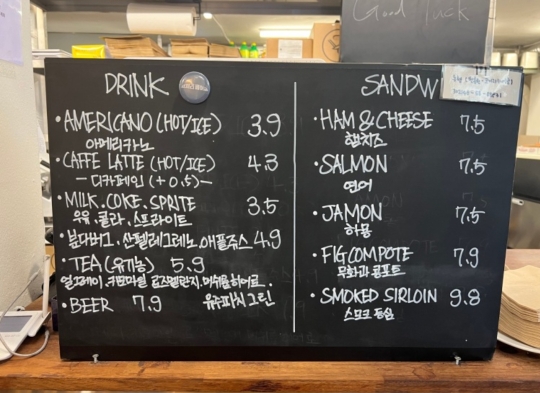 Good Luck
DRINK
· AMERICANO (HOT/ICE) 3.9
아메리카노
· CAFFE LATTE (HOT/ICE) 4.3
- 디카페인 (+0.5) -
· MILK. COKE. SPRITE 3.5
우유. 콜라. 스프라이트
· 붐다버그. 산펠레그리노. 애플주스 4.9
· TEA (유기농) 5.9
얼그레이. 카모마일
유스파시 그린
· BEER 7.9
SANDW
· HAM & CHEESE 7.5
햄치즈
· SALMON 7.5
연어
· JAMON 7.5
하몽
· FIG COMPOTE 7.9
무화과 콤포트
· SMOKED SIRLOIN 9.8
스모크 등심